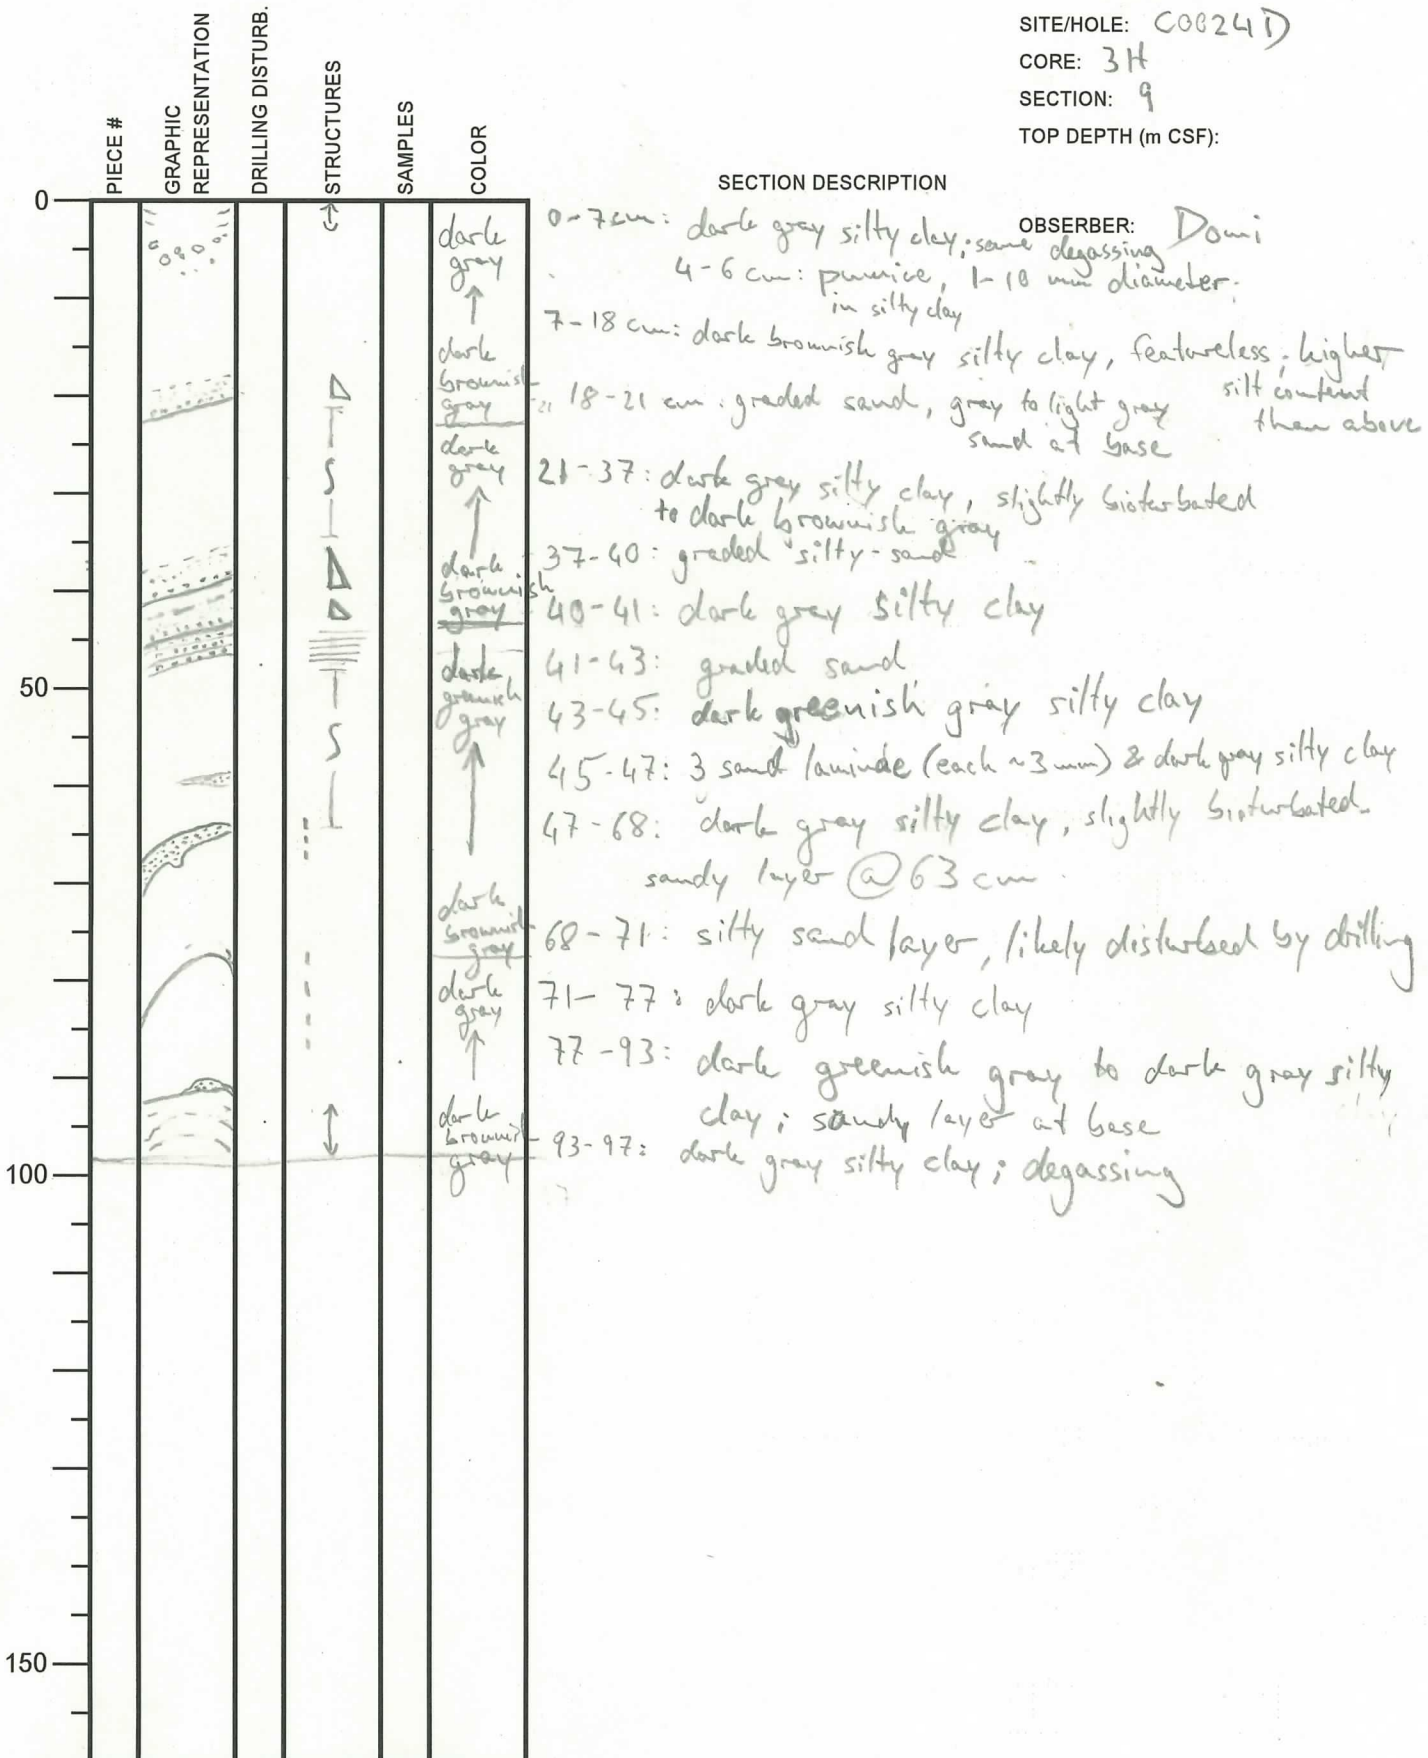 SITE/HOLE: C0024D
CORE: 3H
SECTION: 9
TOP DEPTH (m CSF):
PIECE #
GRAPHIC
REPRESENTATION
DRILLING DISTURB.
STRUCTURES
SAMPLES
COLOR
SECTION DESCRIPTION
OBSERBER: Domi
0
50
100
150
dark
gray
dark
brownish
gray
dark
gray
dark
brownish
gray
dark
greenish
gray
dark
brownish
gray
dark
gray
dark
brownish
gray
0-7cm: dark gray silty clay; some degassing
4-6 cm: pumice, 1-10 mm diameter;
in silty clay
7-18 cm: dark brownish gray silty clay, featureless; higher
silt content
than above
21
18-21 cm: graded sand, gray to light gray
sand at base
21-37: dark gray silty clay, slightly bioturbated
to dark brownish gray
37-40: graded silty-sand
40-41: dark gray silty clay
41-43: graded sand
43-45: dark greenish gray silty clay
45-47: 3 sand laminae (each ~3mm) & dark gray silty clay
47-68: dark gray silty clay, slightly bioturbated.
sandy layer @ 63 cm
68-71: silty sand layer, likely disturbed by drilling
71-77: dark gray silty clay
77-93: dark greenish gray to dark gray silty
clay; sandy layer at base
93-97: dark gray silty clay; degassing